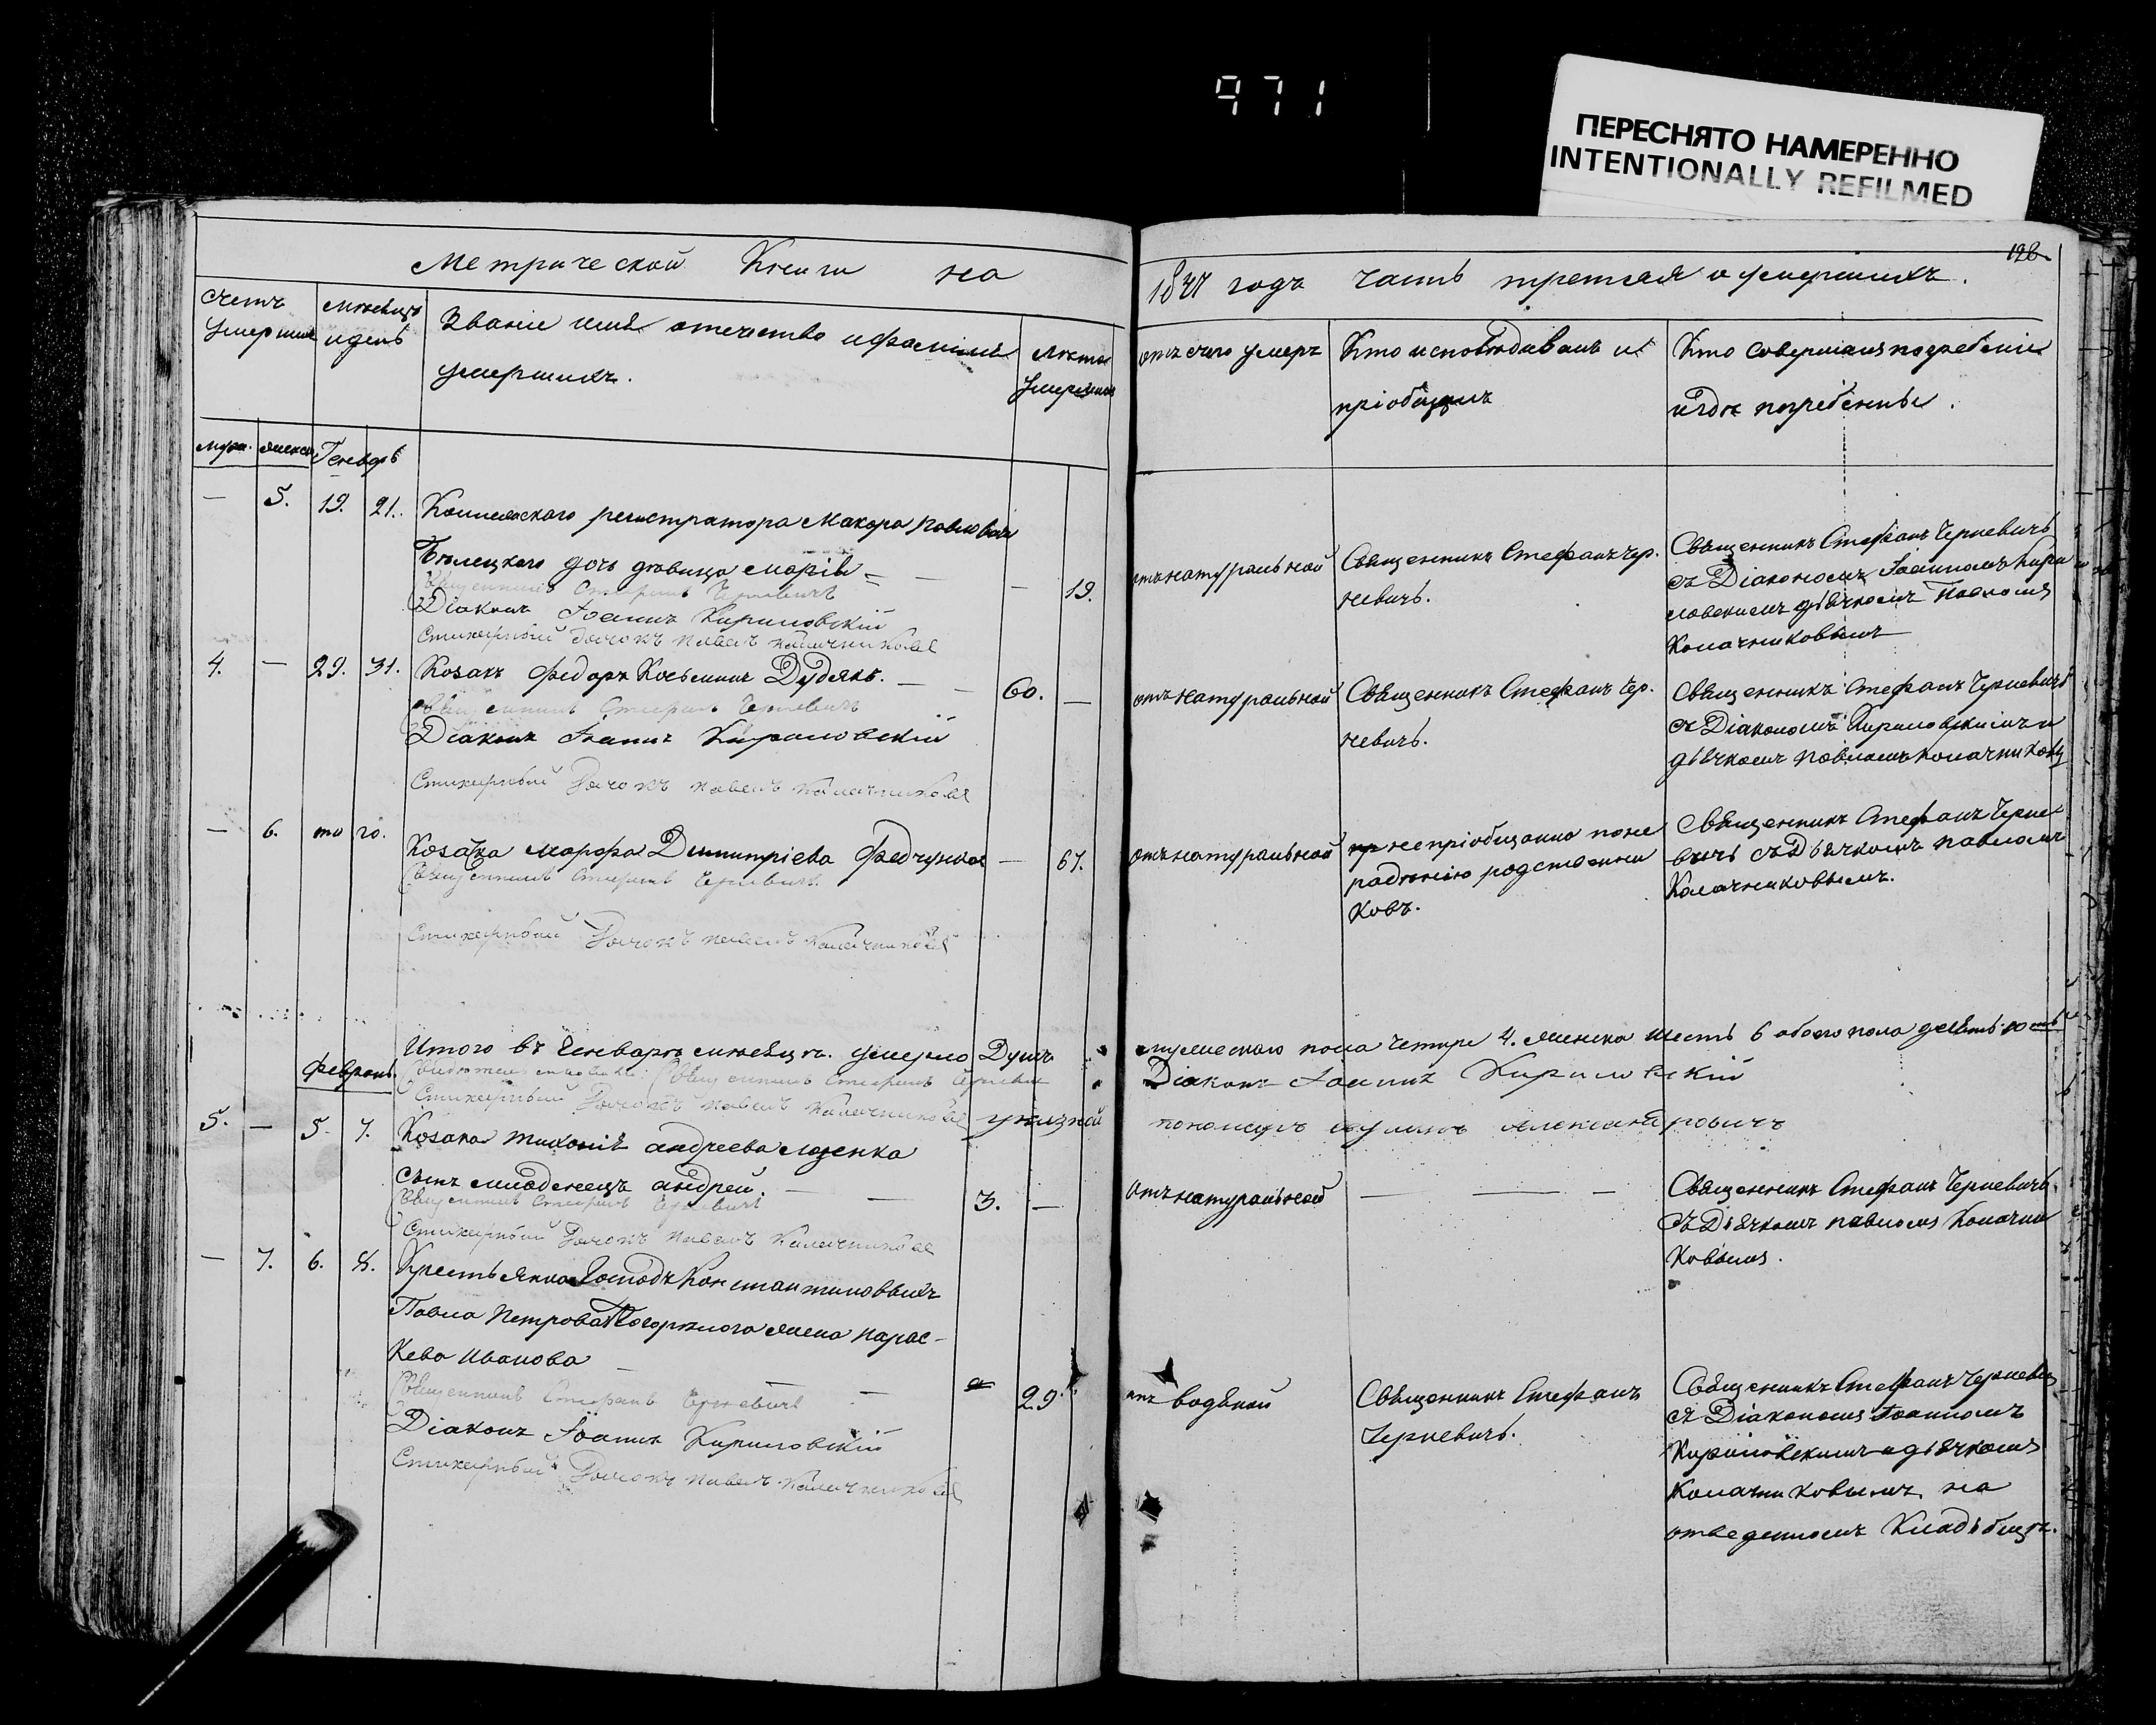 971
ПЕРЕСНЯТО НАМЕРЕННО
INTENTIONALLY REFILMED
Метрической Книги на
1847 годъ часть третяя о умершихъ.
Счетъ
умерших
мѣсяцъ
и день
Званіе имя отечество и фамилія
умершихъ.
Лѣта
умершихъ
отъ чего умеръ
Кто исповѣдивалъ и
пріобщилъ
Кто совершалъ погребеніе
и гдѣ погребены.
муж. женск. Генварь
— 5. 19. 21. Коллежского регистратора Макара Павлова
Бѣлецкого дочь дѣвица Марія —
— 19.
Священникъ Стефанъ Черневичъ
Діаконъ Іоаннъ Кириловскій
Стихарный Дячокъ Павелъ Калачников
отънатуральной
Священникъ Стефанъ Чер-
невичъ.
Священникъ Стефанъ Черневичъ
съ Діакономъ Іоанномъ Кири
ловскимъ дьячкомъ Павломъ
Колачниковымъ
4. — 29. 31. Козакъ Федоръ Косьминъ Дудякъ. —
60. —
Священникъ Стефанъ Черневичъ
Діаконъ Іоаннъ Кириловскій
Стихарный Дячокъ Павелъ Калачников
отънатуральной
Священникъ Стефанъ Чер-
невичъ.
Священникъ Стефанъ Черневичъ
съ Діакономъ Кириловскимъ и
дьячкомъ Павломъ Колачников
— 6. того. Козачка Марфа Димитріева
— 67.
Священникъ Стефанъ Черневичъ
Стихарный Дячокъ Павелъ Калачников
отънатуральной
непріобщанна поне
радѣнію родственни
ковъ.
Священникъ Стефанъ Черне
вичъ съ Дьячкомъ Павломъ
Калачниковымъ.
Итого въ Генваре мѣсяцѣ умерло Душъ
мужеского пола четыре 4. женска шесть 6 обоего пола
Священникъ Стефанъ Черневич
Діаконъ Іоаннъ Кириловскій
Стихарный Дячокъ Павелъ Калачников
пономаръ Александровичъ
Февраль
5. — 5. 7. Козака Андреева
сынъ младенецъ Андрей. —
3. —
Священникъ Стефанъ Черневичъ
Стихарный Дячокъ Павелъ Калачников
отънатуральной
— — —
Священникъ Стефанъ Черневичъ
съ Дьячкомъ Павломъ Колачни
ковымъ.
— 7. 6. 8. Крестьянка Господъ Константиновыхъ
Павла Петрова жена Парас-
кева Иванова —
29.
Священникъ Стефанъ Черневичъ
Діаконъ Іоаннъ Кириловскій
Стихарный Дячокъ Павелъ Калачников
отъ водяной
Священникъ Стефанъ
Черневичъ.
Священникъ Стефанъ Черневич
съ Діакономъ Іоанномъ
Кириловскимъ и дьячкомъ
Колачниковымъ на
отведенномъ Кладбище.